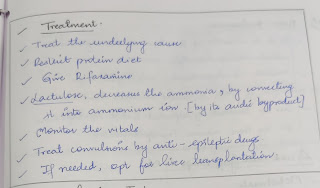 Treatment.
✓ Treat the underlying cause
✓ Restrict protein diet
✓ Give Rifaximine
✓ Lactulose, decreases the ammonia, by converting
it into ammonium ion [by its acidic byproduct]
✓ Monitor the vitals
✓ Treat convulsions by anti-epileptic drugs
✓ If needed, opt for liver transplantation.